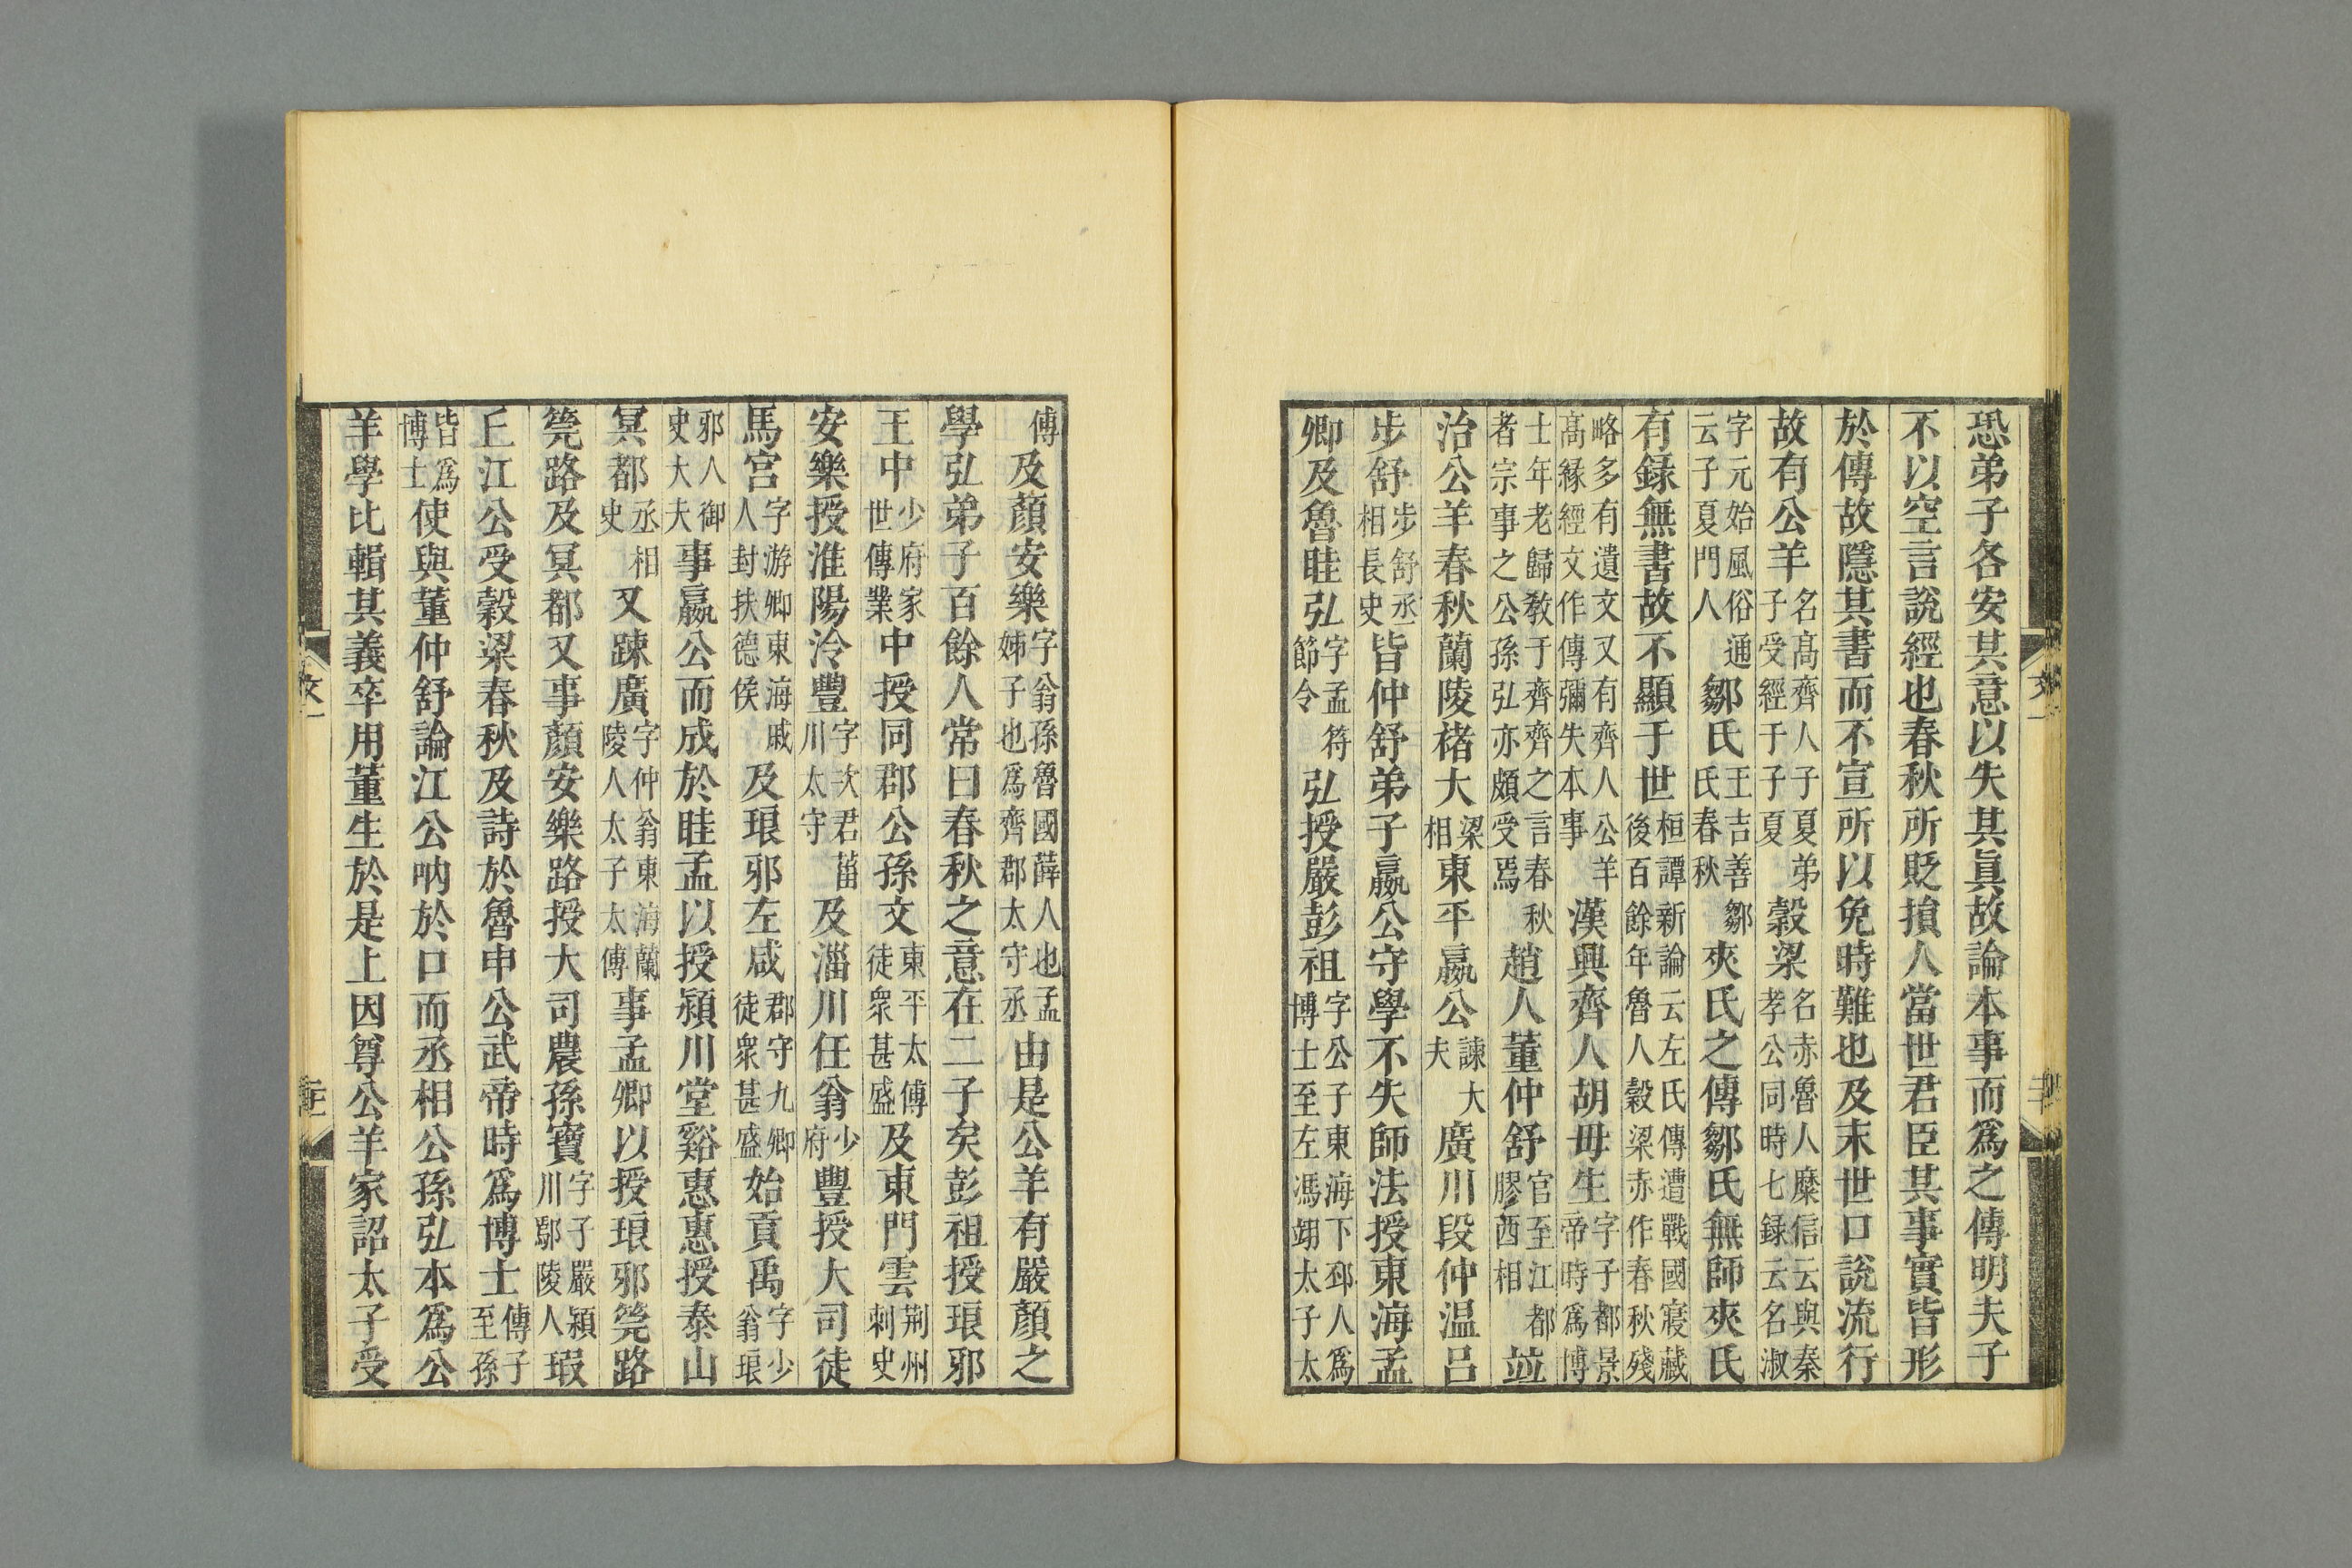 恐弟子各安其意以失其眞故論本事而爲之傳明夫子
不以空言說經也春秋所貶損人當世君臣其事實皆形
於傳故隱其書而不宣所以免時難也及末世口說流行
故有公羊名髙齊人子夏弟子受經于子夏穀梁名赤魯人糜信云與秦孝公同時七録云名淑
字元始風俗通云子夏門人鄒氏王吉善鄒氏春秋夾氏之傳鄒氏無師夾氏
有録無書故不顯于世桓譚新論云左氏傳遭戰國寢藏後百餘年魯人穀梁赤作春秋殘
略多有遺文又有齊人公羊髙緣經文作傳彌失本事漢興齊人胡毋生字子都景帝時爲博
士年老歸敎于齊齊之言春秋者宗事之公孫弘亦頗受焉趙人董仲舒官至江都膠西相竝
治公羊春秋蘭陵褚大梁相東平嬴公諫大夫廣川段仲温呂
步舒步舒丞相長史皆仲舒弟子嬴公守學不失師法授東海孟
卿及魯眭弘字孟符節令弘授嚴彭祖字公子東海下邳人爲博士至左馮翊太子太
傅及顏安樂字翁孫魯國薛人也孟姊子也爲齊郡太守丞由是公羊有嚴顏之
學弘弟子百餘人常曰春秋之意在二子矣彭祖授琅邪
王中少府家世傳業中授同郡公孫文東平太傅徒衆甚盛及東門雲荆州刺史
安樂授淮陽泠豐字次君菑川太守及淄川任翁少府豐授大司徒
馬宮字游卿東海戚人封扶德侯及琅邪左咸郡守九卿徒衆甚盛始貢禹字少翁琅
邪人御史大夫事嬴公而成於眭孟以授潁川堂谿惠惠授泰山
冥都丞相史又踈廣字仲翁東海蘭陵人太子太傅事孟卿以授琅邪筦路
筦路及冥都又事顏安樂路授大司農孫寶字子嚴潁川鄢陵人瑕
丘江公受穀梁春秋及詩於魯申公武帝時爲博士傳子至孫
皆爲博士使與董仲舒論江公吶於口而丞相公孫弘本爲公
羊學比輯其義卒用董生於是上因尊公羊家詔太子受